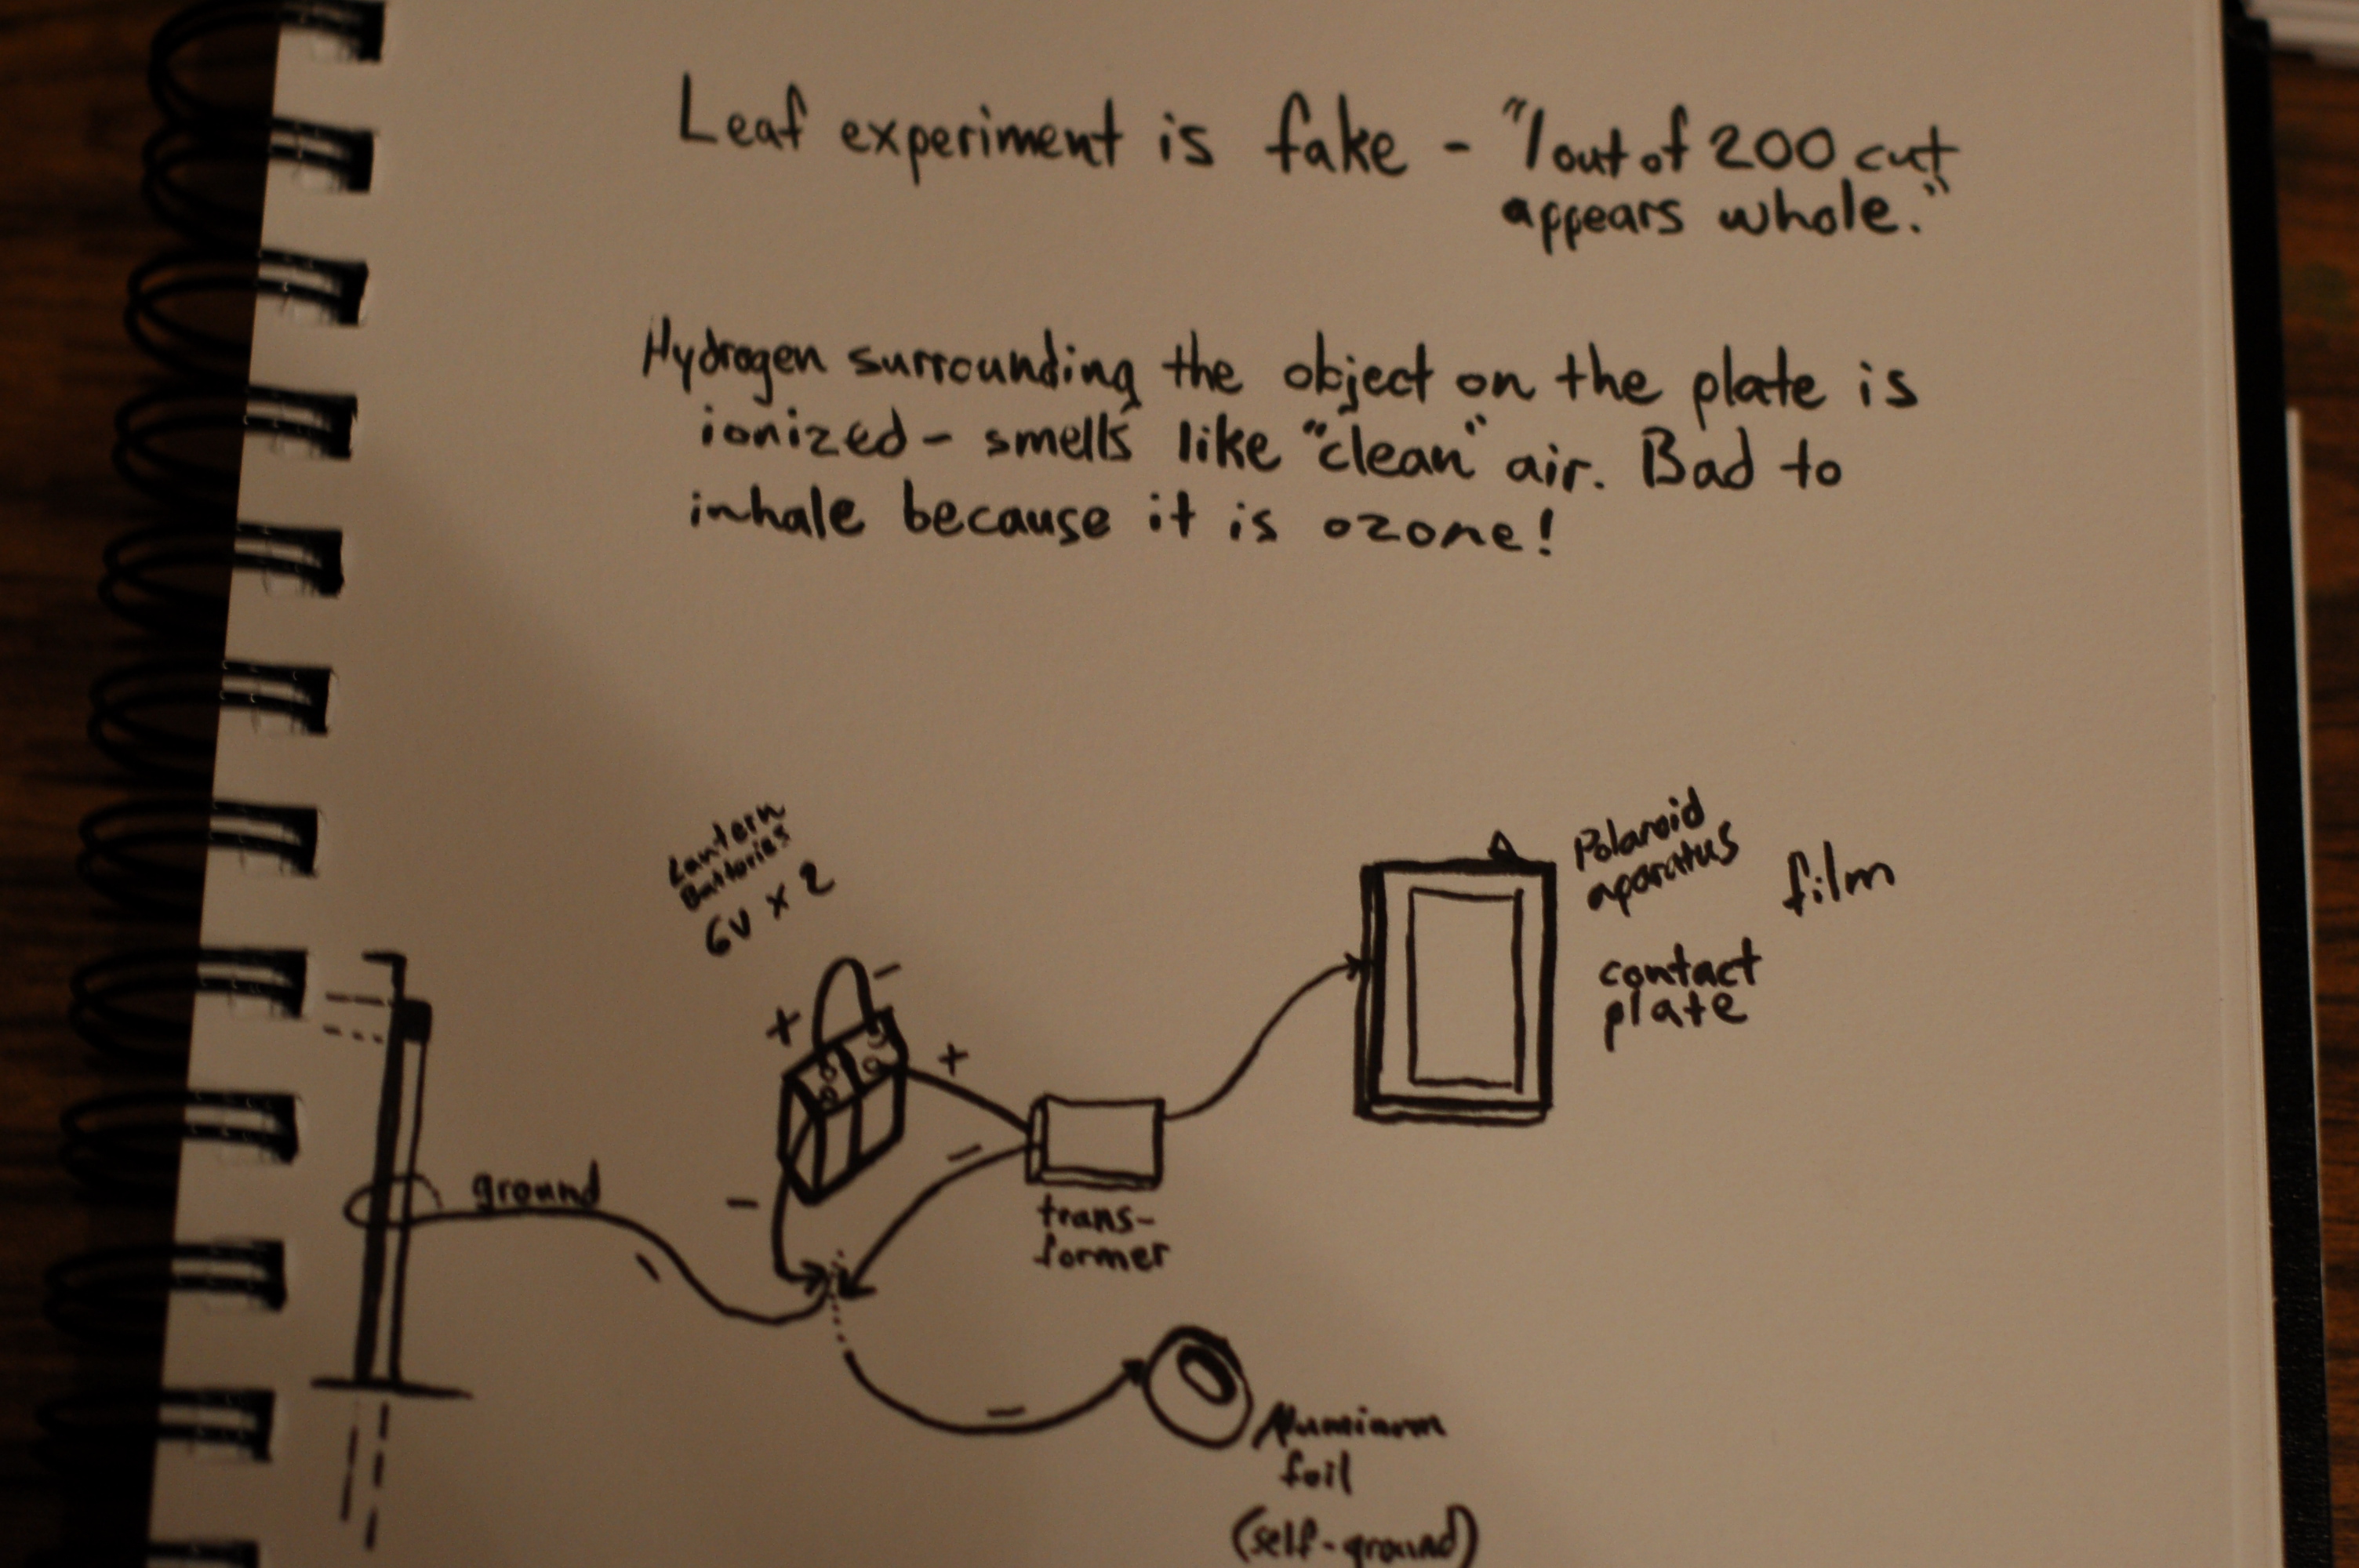 Leaf experiment is fake - "1 out of 200 cut
appears whole."
Hydrogen surrounding the object on the plate is
ionized - smells like "clean" air. Bad to
inhale because it is ozone!
Lantern
Batteries
6V x 2
Polaroid
aparatus
film
contact
plate
+
-
+
-
-
ground
trans-
former
-
Aluminum
foil
(self-ground)